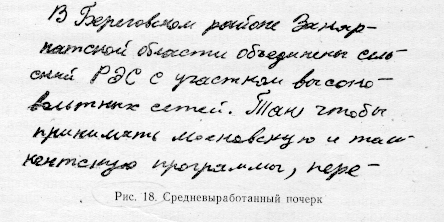 В Береговском районе Закар-
патской области объединены сель-
ский РЭС с участком высоко-
вольтных сетей. Так, чтобы
принимать московскую и таш-
кентскую программы, пере-
Рис. 18. Средневыработанный почерк